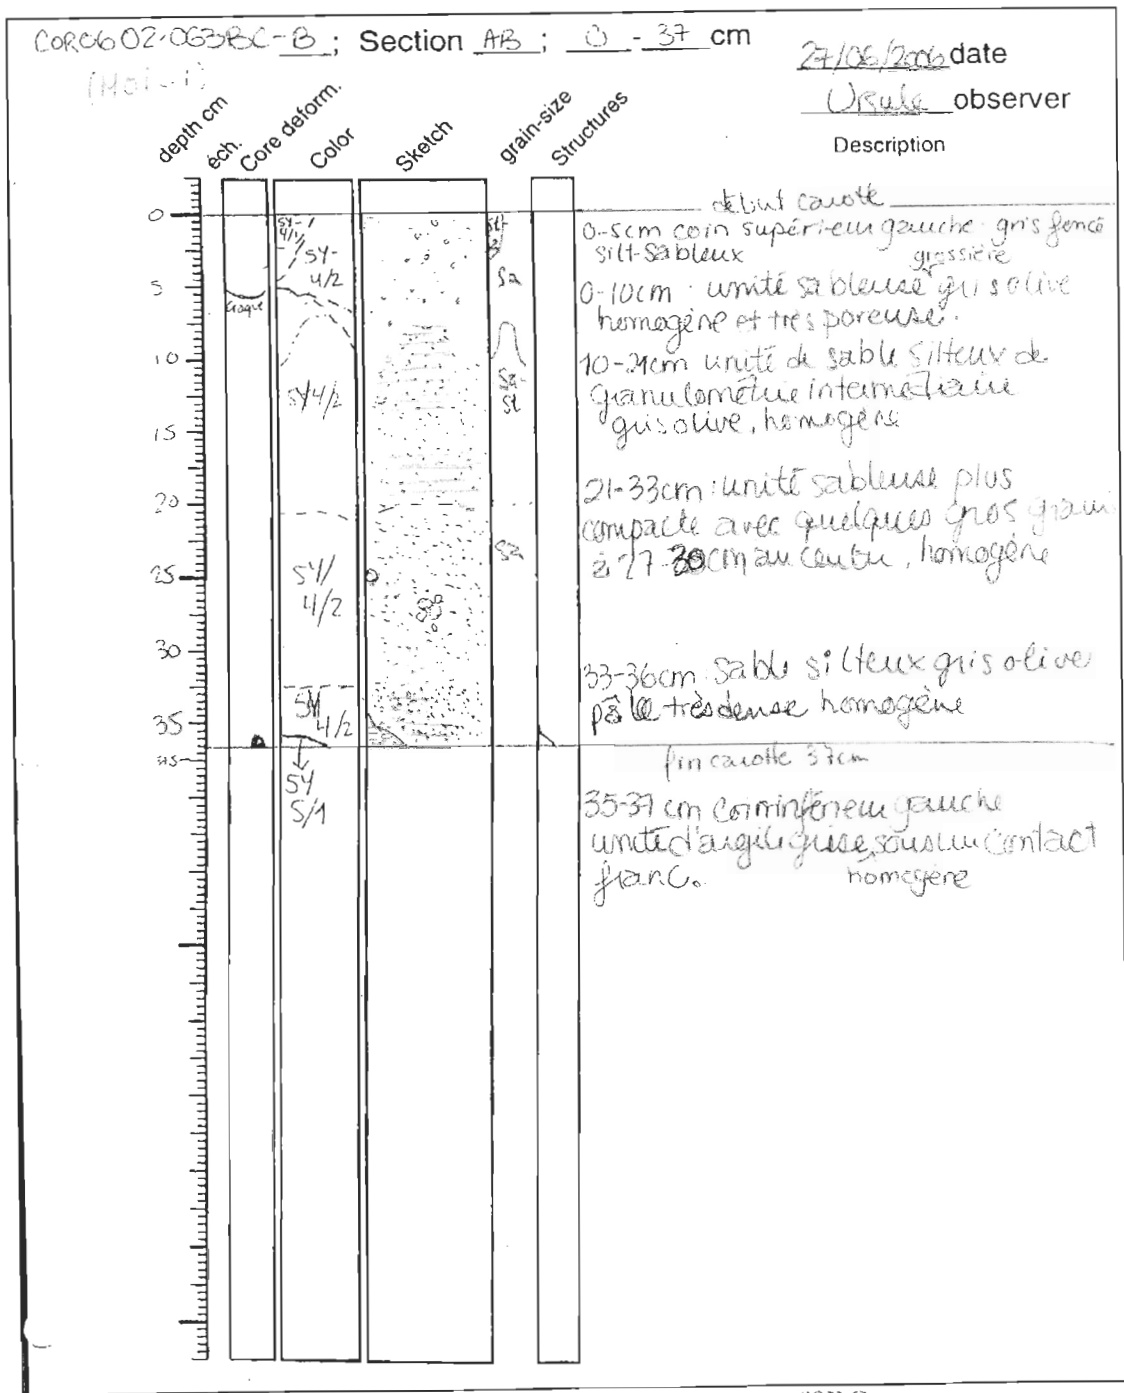 COR0602-063BC-B ; Section AB ; 0 - 37 cm
27/06/2006 date
Ursule observer
Description
depth cm
éch.
Core deform.
Color
Sketch
grain-size
Structures
début carotte
0
5
10
15
20
25
30
35
45
5Y-
4/2
5Y4/2
5Y/
4/2
5Y
4/2
5Y
5/1
craque
Sa
Sa-
st
Sa
0-5cm coin supérieur gauche gris foncé
silt-sableux
grossière
0-10cm : unité sableuse gris olive
homogène et très poreuse.
10-21cm unité de sable silteux de
granulométrie intermédiaire
gris olive, homogène
21-33cm : unité sableuse plus
compacte avec quelques gros grains
à 27-30cm au centre, homogène
33-36cm sable silteux gris olive
pâle très dense homogène
fin carotte 37cm
35-37 cm coin inférieur gauche
unité d'argile grise, sous un contact
franc. homogène